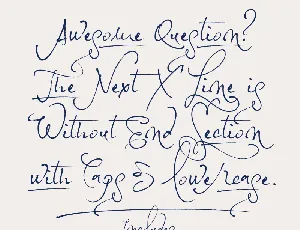 Awesome Question?
The Next X Line is
Without End Section
with Caps & lowercase.
Includes